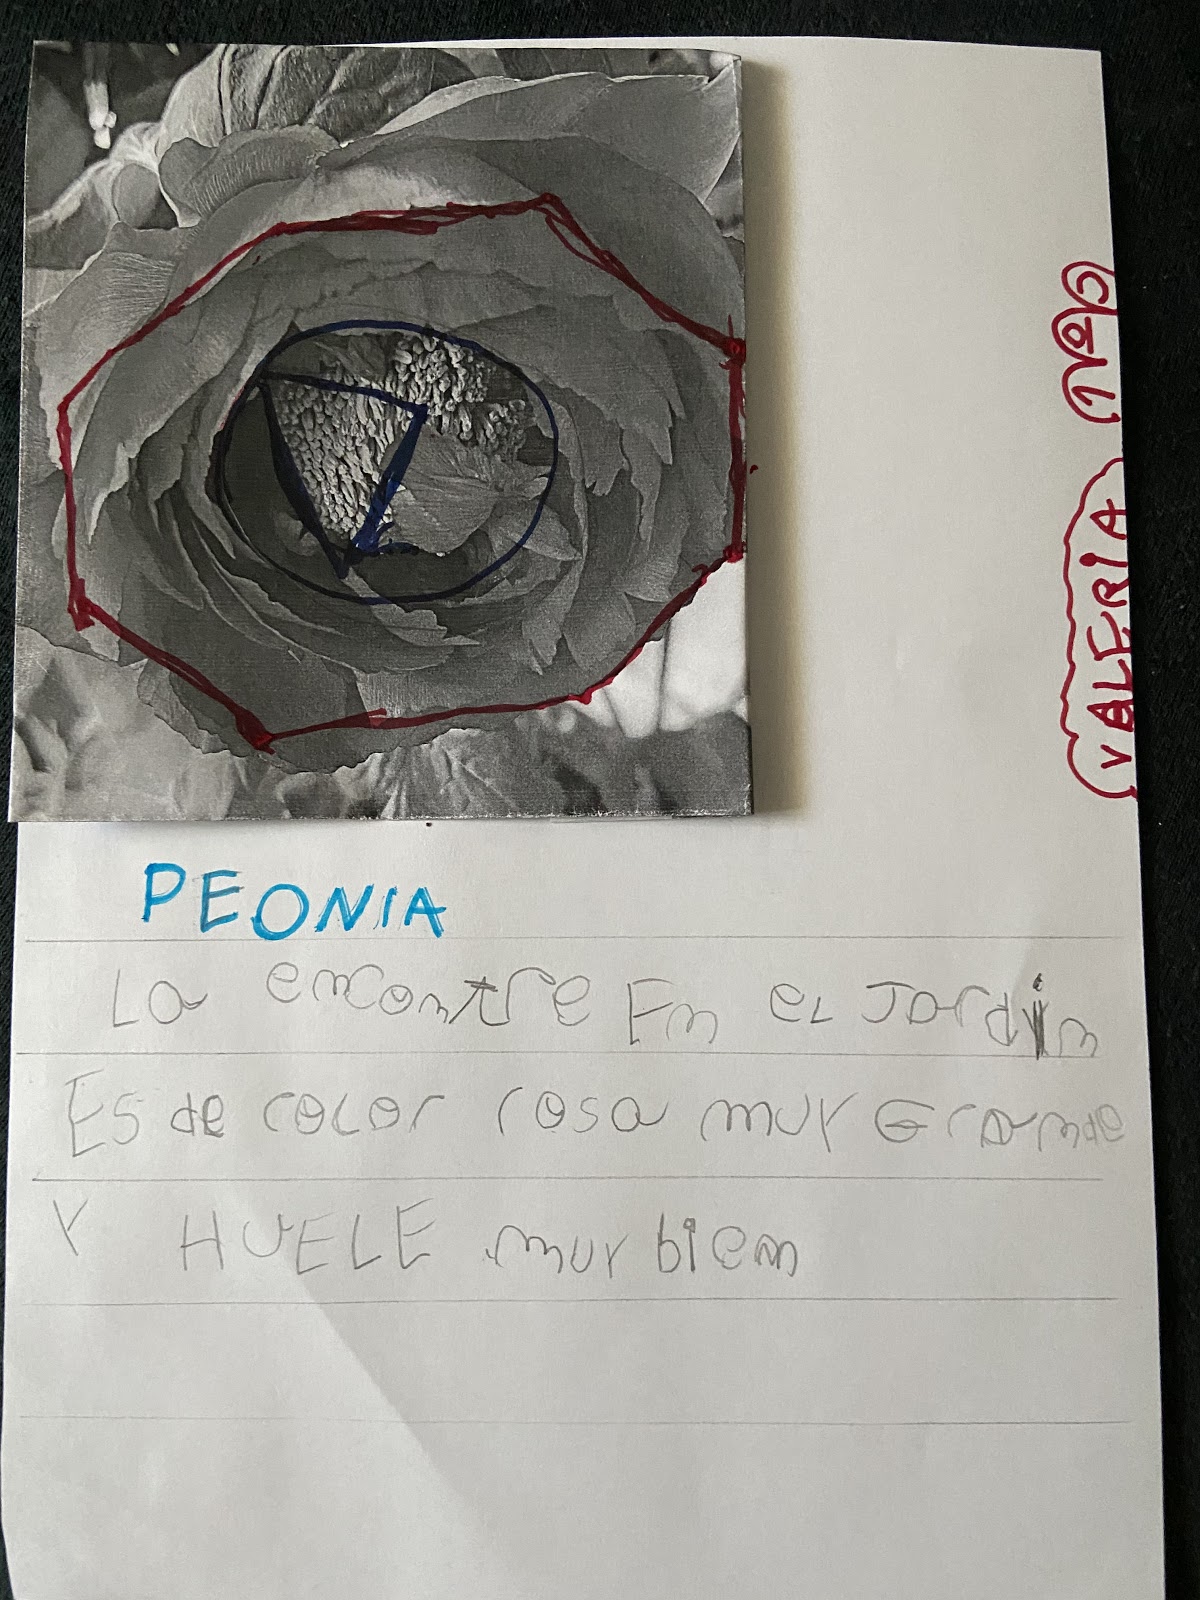 PEONIA
La encontre En eL Jardin
Es de coLor rosa muy Grande
Y HUELE muy bien
VALERIA 1ºC